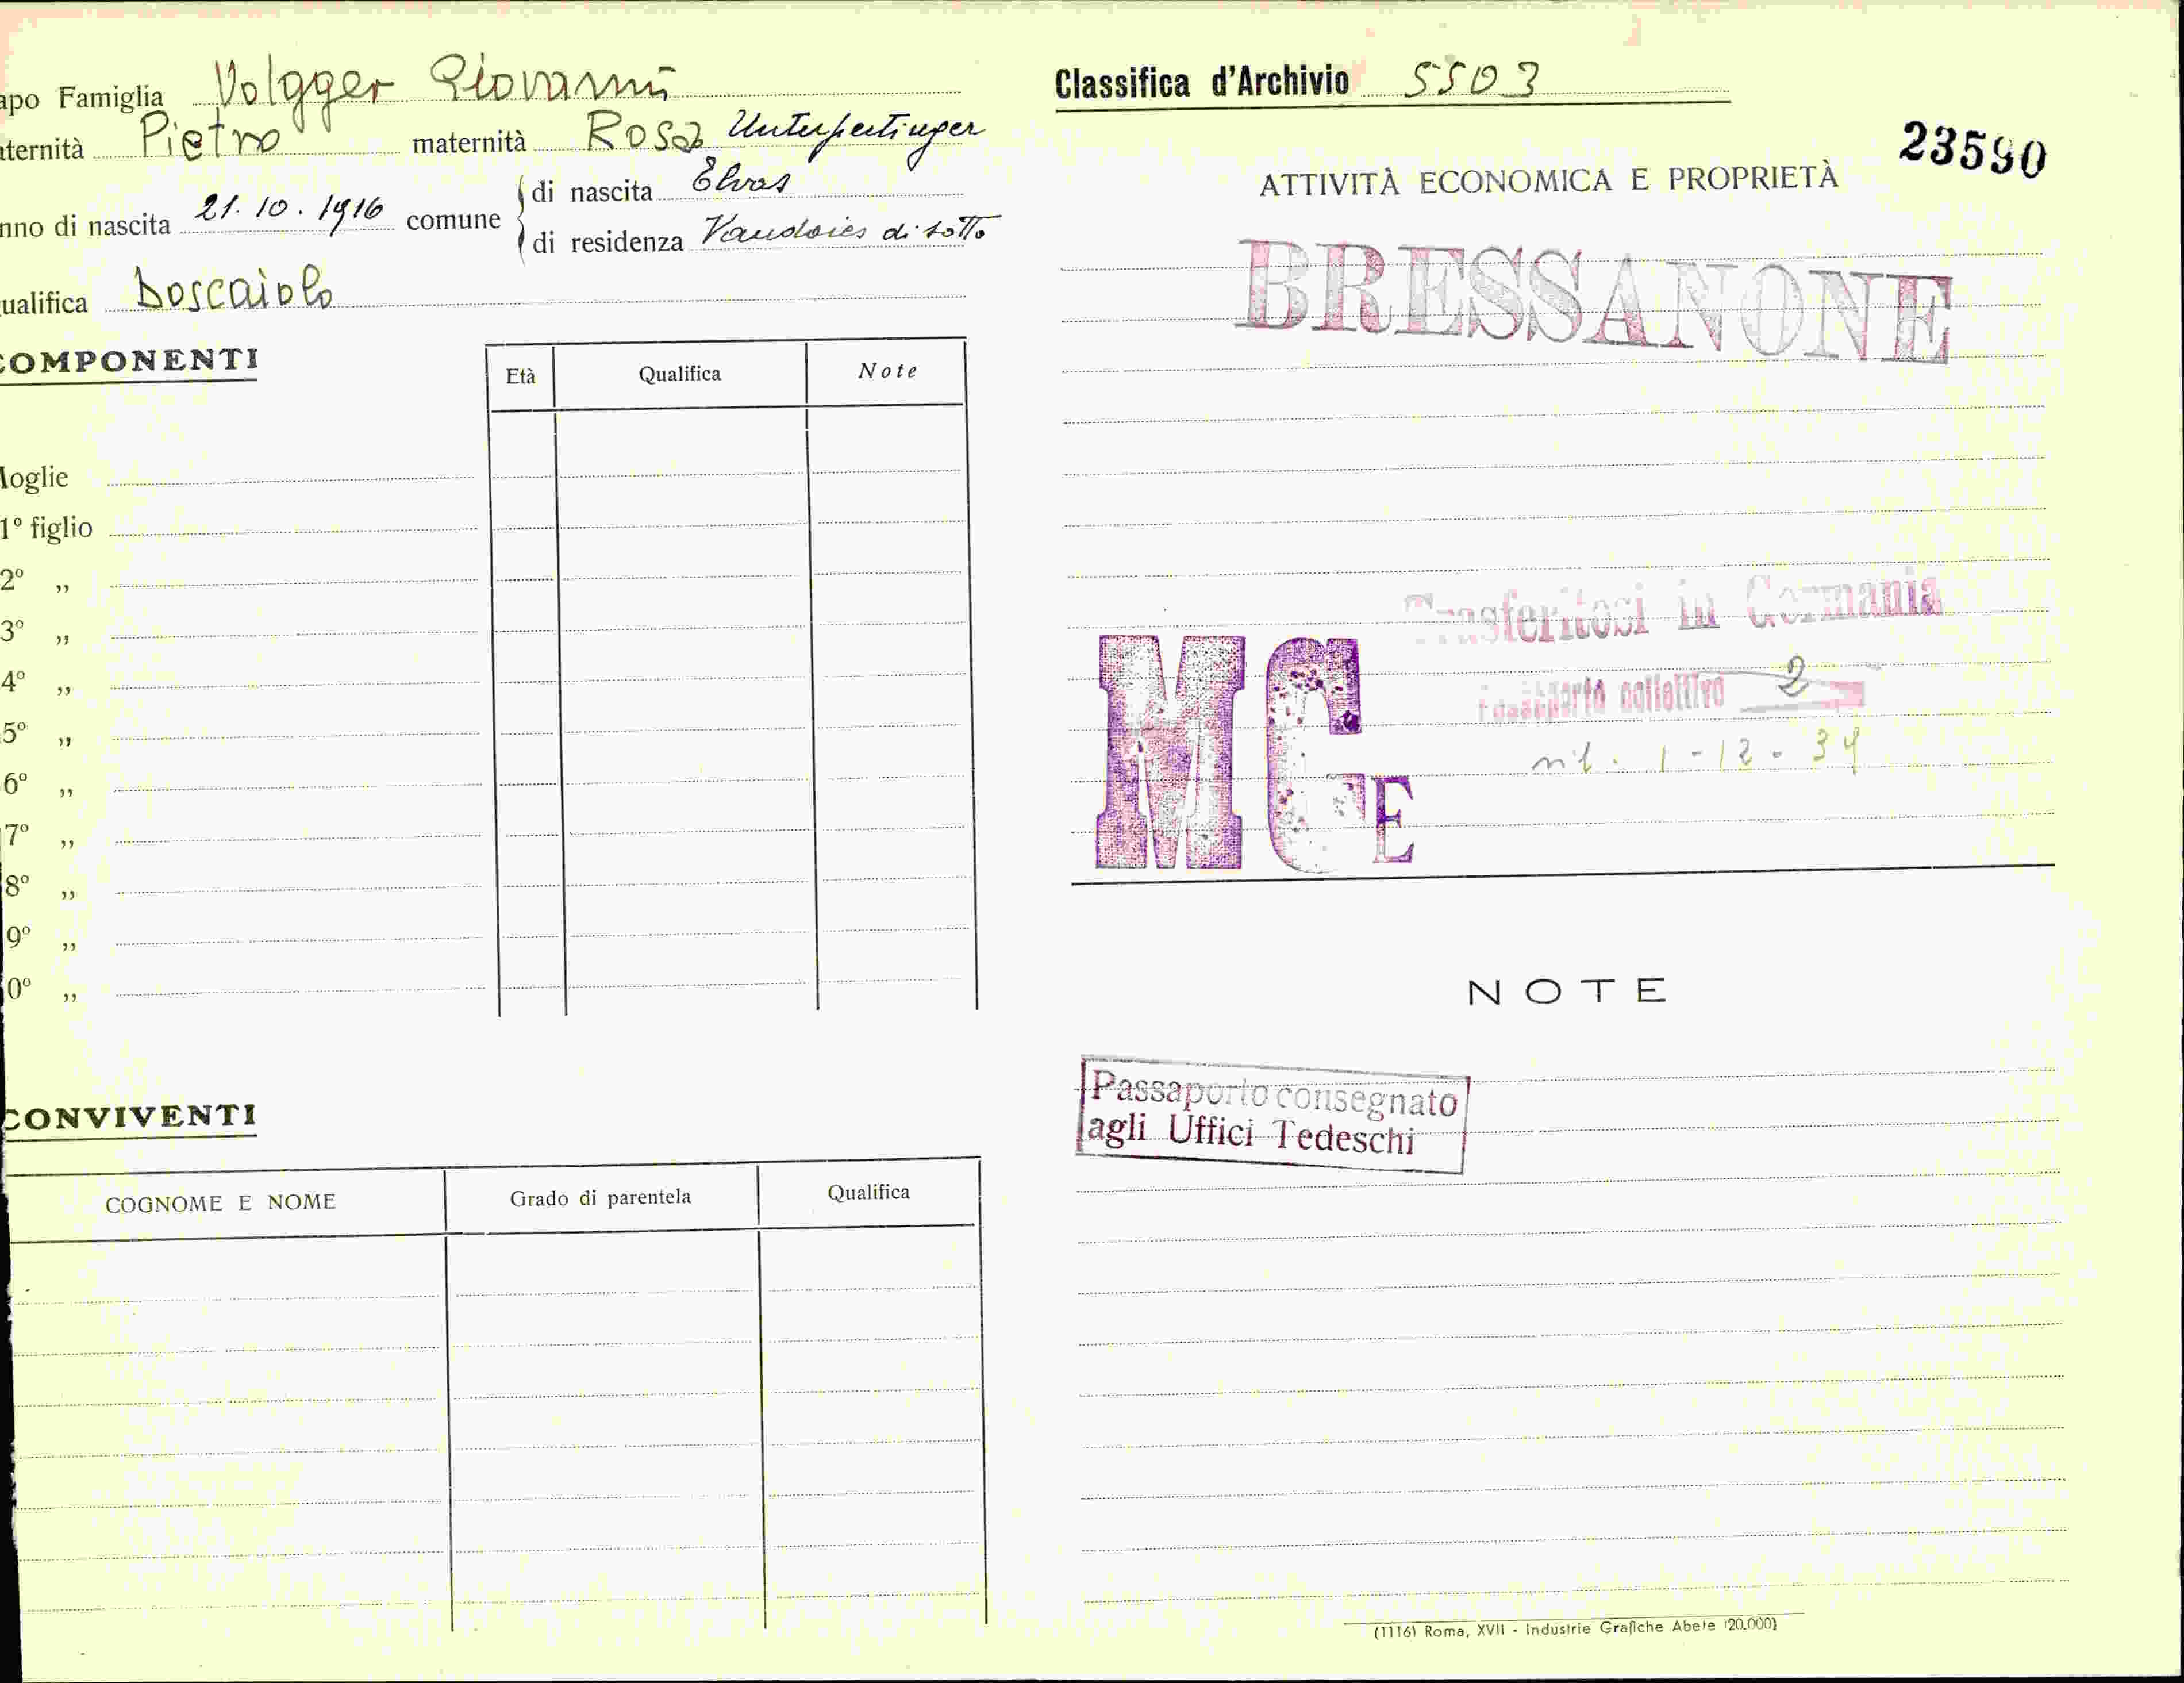 apo Famiglia Volgger Giovanni
aternità Pietro maternità Rosa Unterpertinger
nno di nascita 21.10.1916 comune di nascita Elvas
di residenza Vandoies di sotto
ualifica boscaiolo
COMPONENTI
Età Qualifica Note
Moglie
1º figlio
2º „
3º „
4º „
5º „
6º „
7º „
8º „
9º „
0º „
CONVIVENTI
COGNOME E NOME Grado di parentela Qualifica
Classifica d'Archivio 5503
23590
ATTIVITÀ ECONOMICA E PROPRIETÀ
BRESSANONE
Trasferitosi in Germania
Passaporto collettivo 2
1-12-39
MGE
NOTE
Passaporto consegnato
agli Uffici Tedeschi
(1116) Roma, XVII - Industrie Grafiche Abete (20.000)